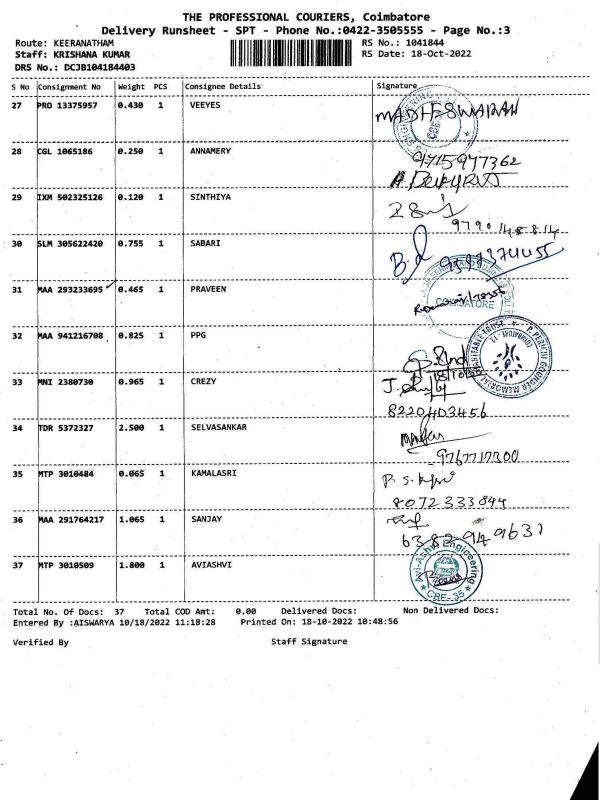 THE PROFESSIONAL COURIERS, Coimbatore
Delivery Runsheet - SPT - Phone No.:0422-3505555 - Page No.:3
Route: KEERANATHAM RS No.: 1041844
Staff: KRISHANA KUMAR RS Date: 18-Oct-2022
DRS No.: DCJB104184403
S No Consignment No Weight PCS Consignee Details Signature
27 PRO 13375957 0.430 1 VEEYES MADHESWARAN
28 CGL 1065186 0.250 1 ANNAMERY 9715977362
29 IXM 502325126 0.120 1 SINTHIYA
30 SLM 305622420 0.755 1 SABARI
31 MAA 293233695 0.465 1 PRAVEEN COIMBATORE
32 MAA 941216708 0.825 1 PPG
33 MNI 2380730 0.965 1 CREZY
8220403456
34 TDR 5372327 2.500 1 SELVASANKAR
35 MTP 3010484 0.065 1 KAMALASRI
8072333894
36 MAA 291764217 1.065 1 SANJAY
37 MTP 3010509 1.800 1 AVIASHVI Avi-Ashvi Engineering
CBE-35
Total No. Of Docs: 37 Total COD Amt: 0.00 Delivered Docs: Non Delivered Docs:
Entered By :AISWARYA 10/18/2022 11:18:28 Printed On: 18-10-2022 10:48:56
Verified By Staff Signature